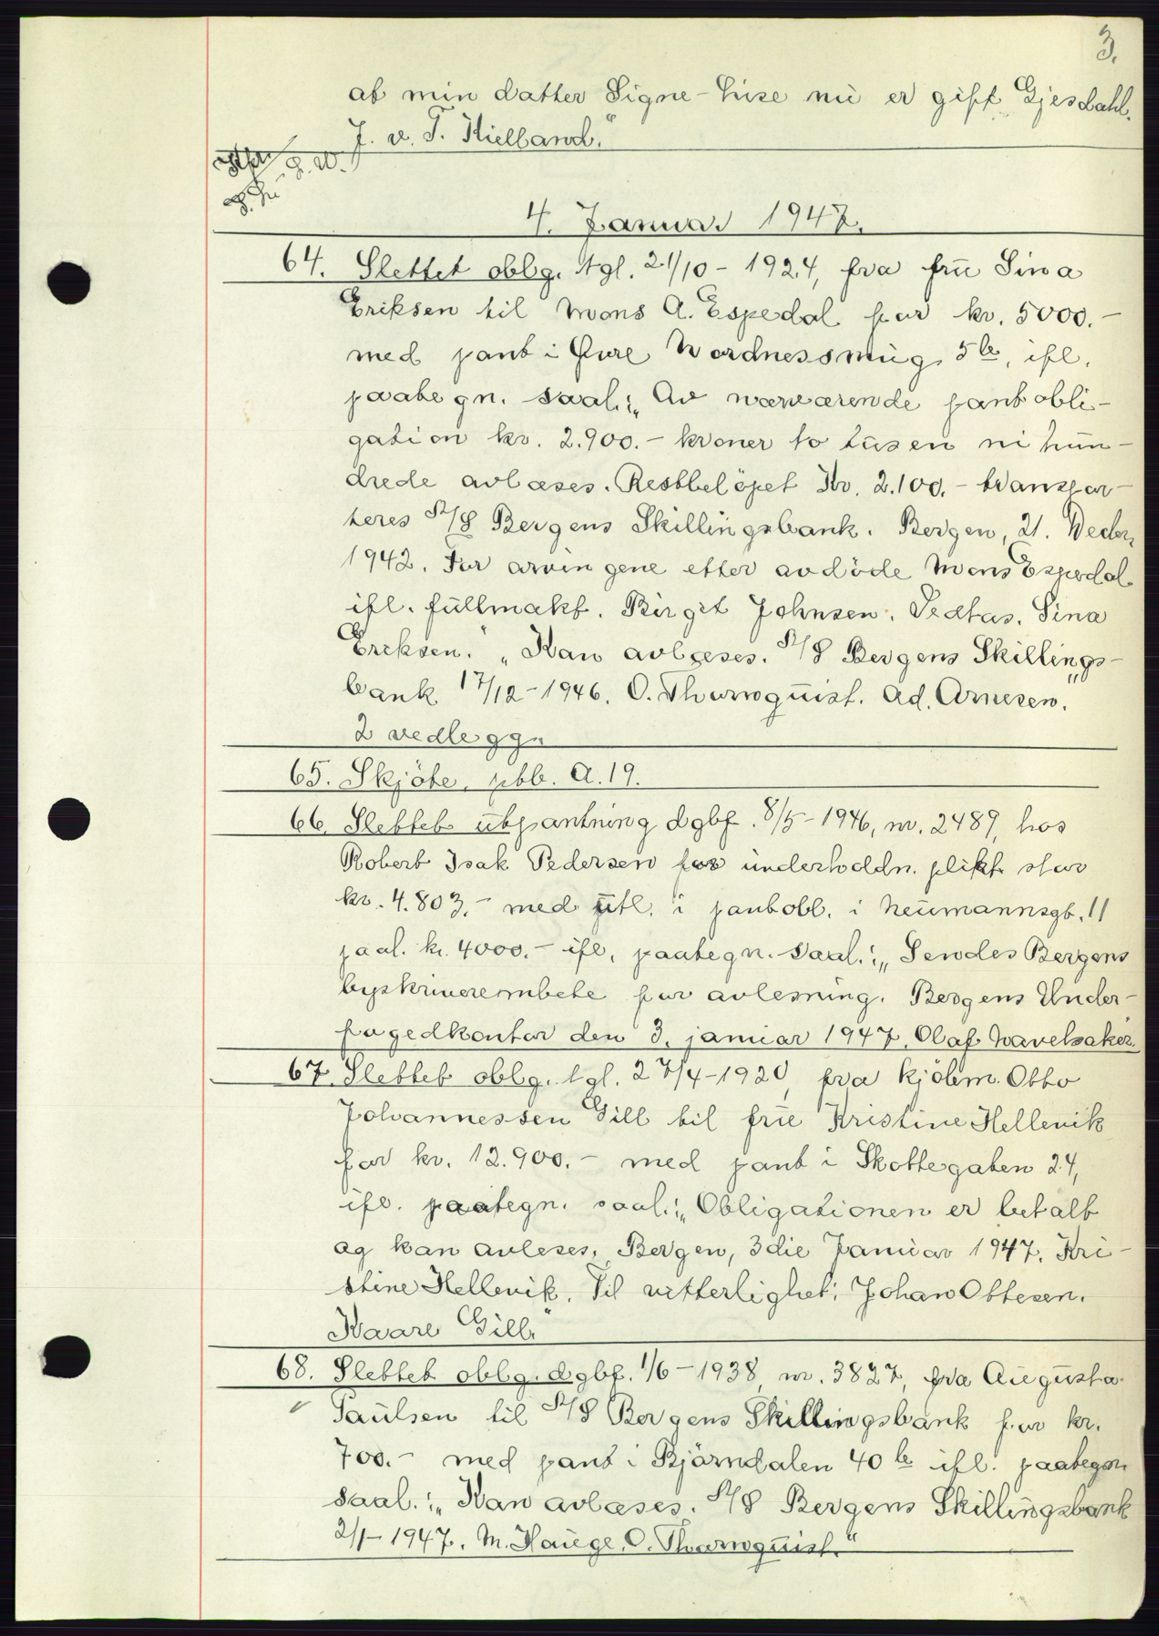 3.
at min datter Signe-Lise nu er gift Gjesdahl.
J. v. T. Kielland."
4. Januar 1947.
64. Slettet oblg. tgl. 21/10 - 1924, fra frü Sina
Eriksen til Mons A. Espedal for kr. 5000.-
med pant i Øvre Nordnessmug 5b, ifl.
paabegn. saal.: „Av nærværende pantobli-
gation kr. 2.900.- kroner to tüsen ni hün-
drede avlæses. Restbelöpet Kr. 2.100.- transpor-
teres A/S Bergens Skillingsbank. Bergen, 21. Decbr.
1942. For arvingene etter avdöde Mons Espedal
ifl. füllmakt. Birgit Johnsen. Sina
Eriksen." „Kan avlæses. A/S Bergens Skillings-
bank 17/12 - 1946. O. Thurnquist. Ad. Arnesen."
2 vedlegg.
65. Skjöte, pbb. A.19.
66. Slettet utpantning dgbf. 8/5 - 1946, nr. 2489, hos
Robert Isak Pedersen for underholdn. plikt stor
kr. 4.803.- med utl. i pantobl. i Neumannsgt. 11
paal. kr. 4000.- ifl. paategn. saal.: „Sendes Bergens
byskriverembete for avlesning. Bergens Under-
fogedkontor den 3. januar 1947. Olaf
67. Slettet oblg. tgl. 27/4 - 1920 fra kjöbm. Otto
Johannessen Gill til frue Kristine Hellevik
for kr. 12.900.- med pant i Skottegaten 24,
ifl. paategn. saal.: „Obligationen er betalt
og kan avleses, Bergen, 3die Januar 1947. Kri-
stine Hellevik. Til vitterlighet: Johan Ottesen.
Kaare Gill."
68. Slettet oblg. dgbf. 1/6 - 1938 nr. 3827, fra Augusta
Paulsen til A/S Bergens Skillingsbank for kr.
700.- med pant i Björndalen 40 b ifl. paategn
saal.: „Kan avlæses. A/S Bergens Skillingsbank
2/1 - 1947. M. Hauge. O. Thurnquist."